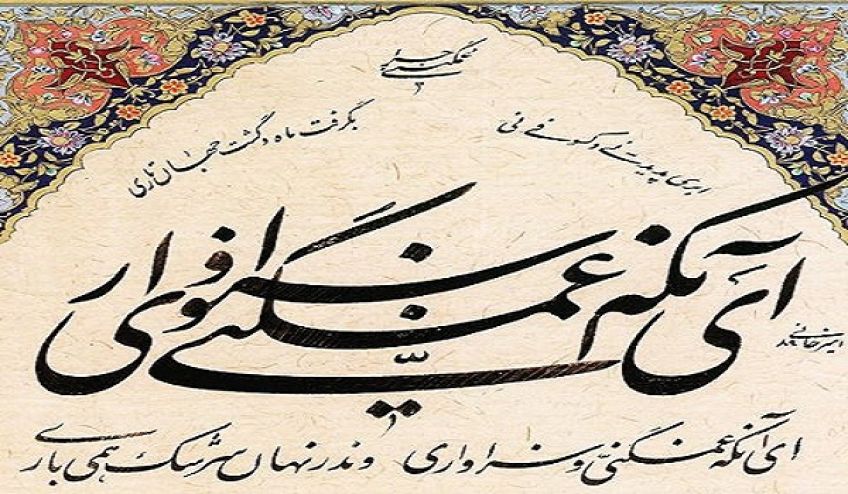 ابری پدید نی و کسوفی نی
بگرفت ماه و گشت جهان تاری
ای آنکه غمگنی و سزاواری
امیرخانی
ای آنکه غمگنی و سزاواری وندر نهان سرشک همی باری